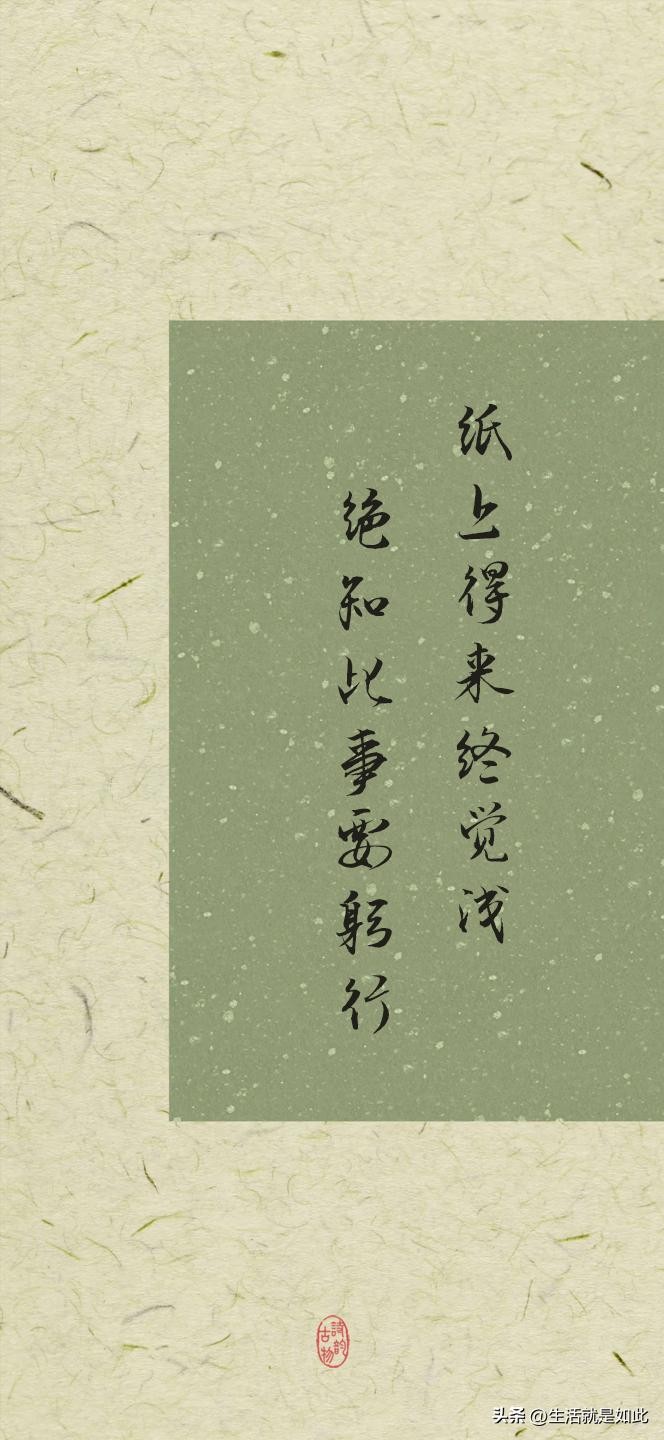 纸上得来终觉浅
绝知此事要躬行
詩韵
古物
头条 @生活就是如此